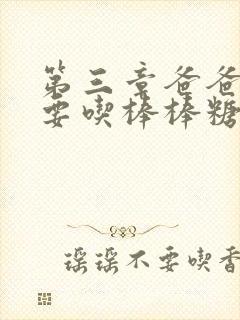 第三章爸爸
要喫棒棒糖
瑶瑶不要喫香